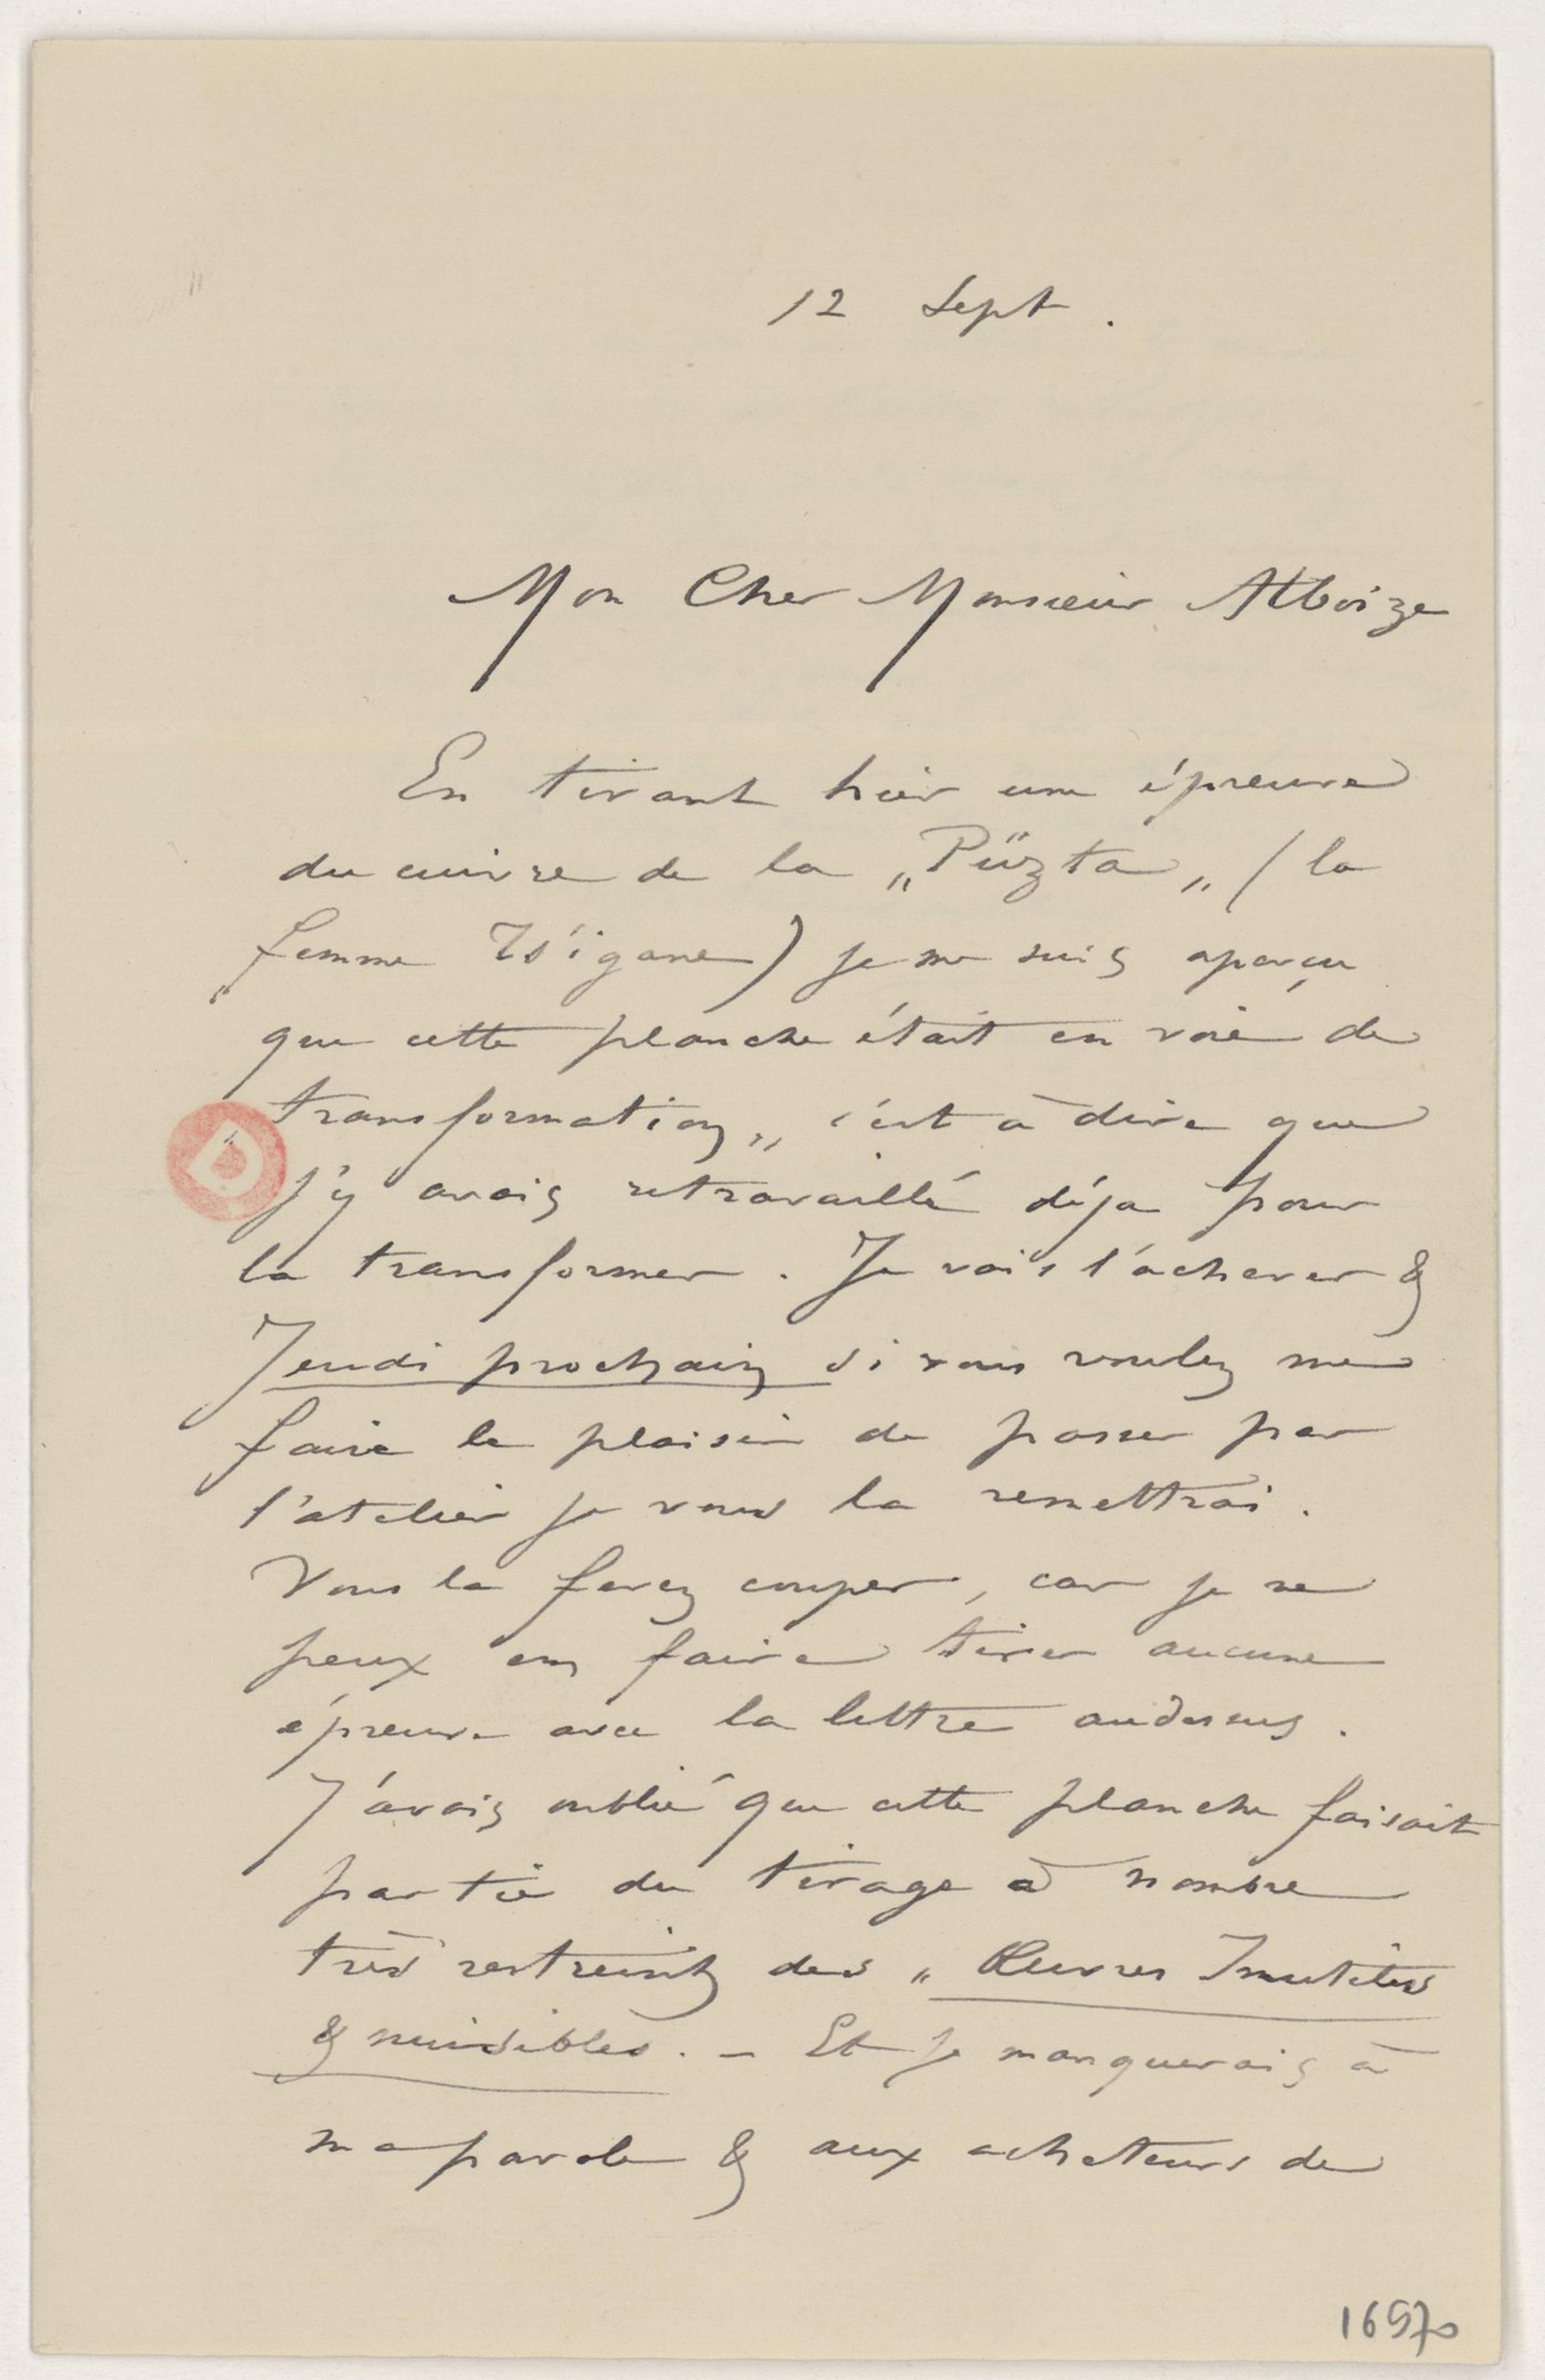 12 Sept.
Mon Cher Monsieur Alboize
En tirant hier une épreuve
du cuivre de la „Püzta„ (la
femme Tsigane) je me suis aperçu
que cette planche était en voie de
transformation„ c'est à dire que
j'y avais retravaillé déja pour
la transformer. Je vais l'achever &
Jeudi prochain si vous voulez me
faire le plaisir de passer par
l'atelier je vous la remettrai.
Vous la ferez couper, car je ne
peux en faire tirer aucune
épreuve avec la lettre audessus.
J'avais oublié que cette planche faisait
partie du tirage à nombre
très restreint des „ Œuvres Inutiles
& nuisibles. — Et je manquerais à
ma parole & aux acheteurs de
D
16570